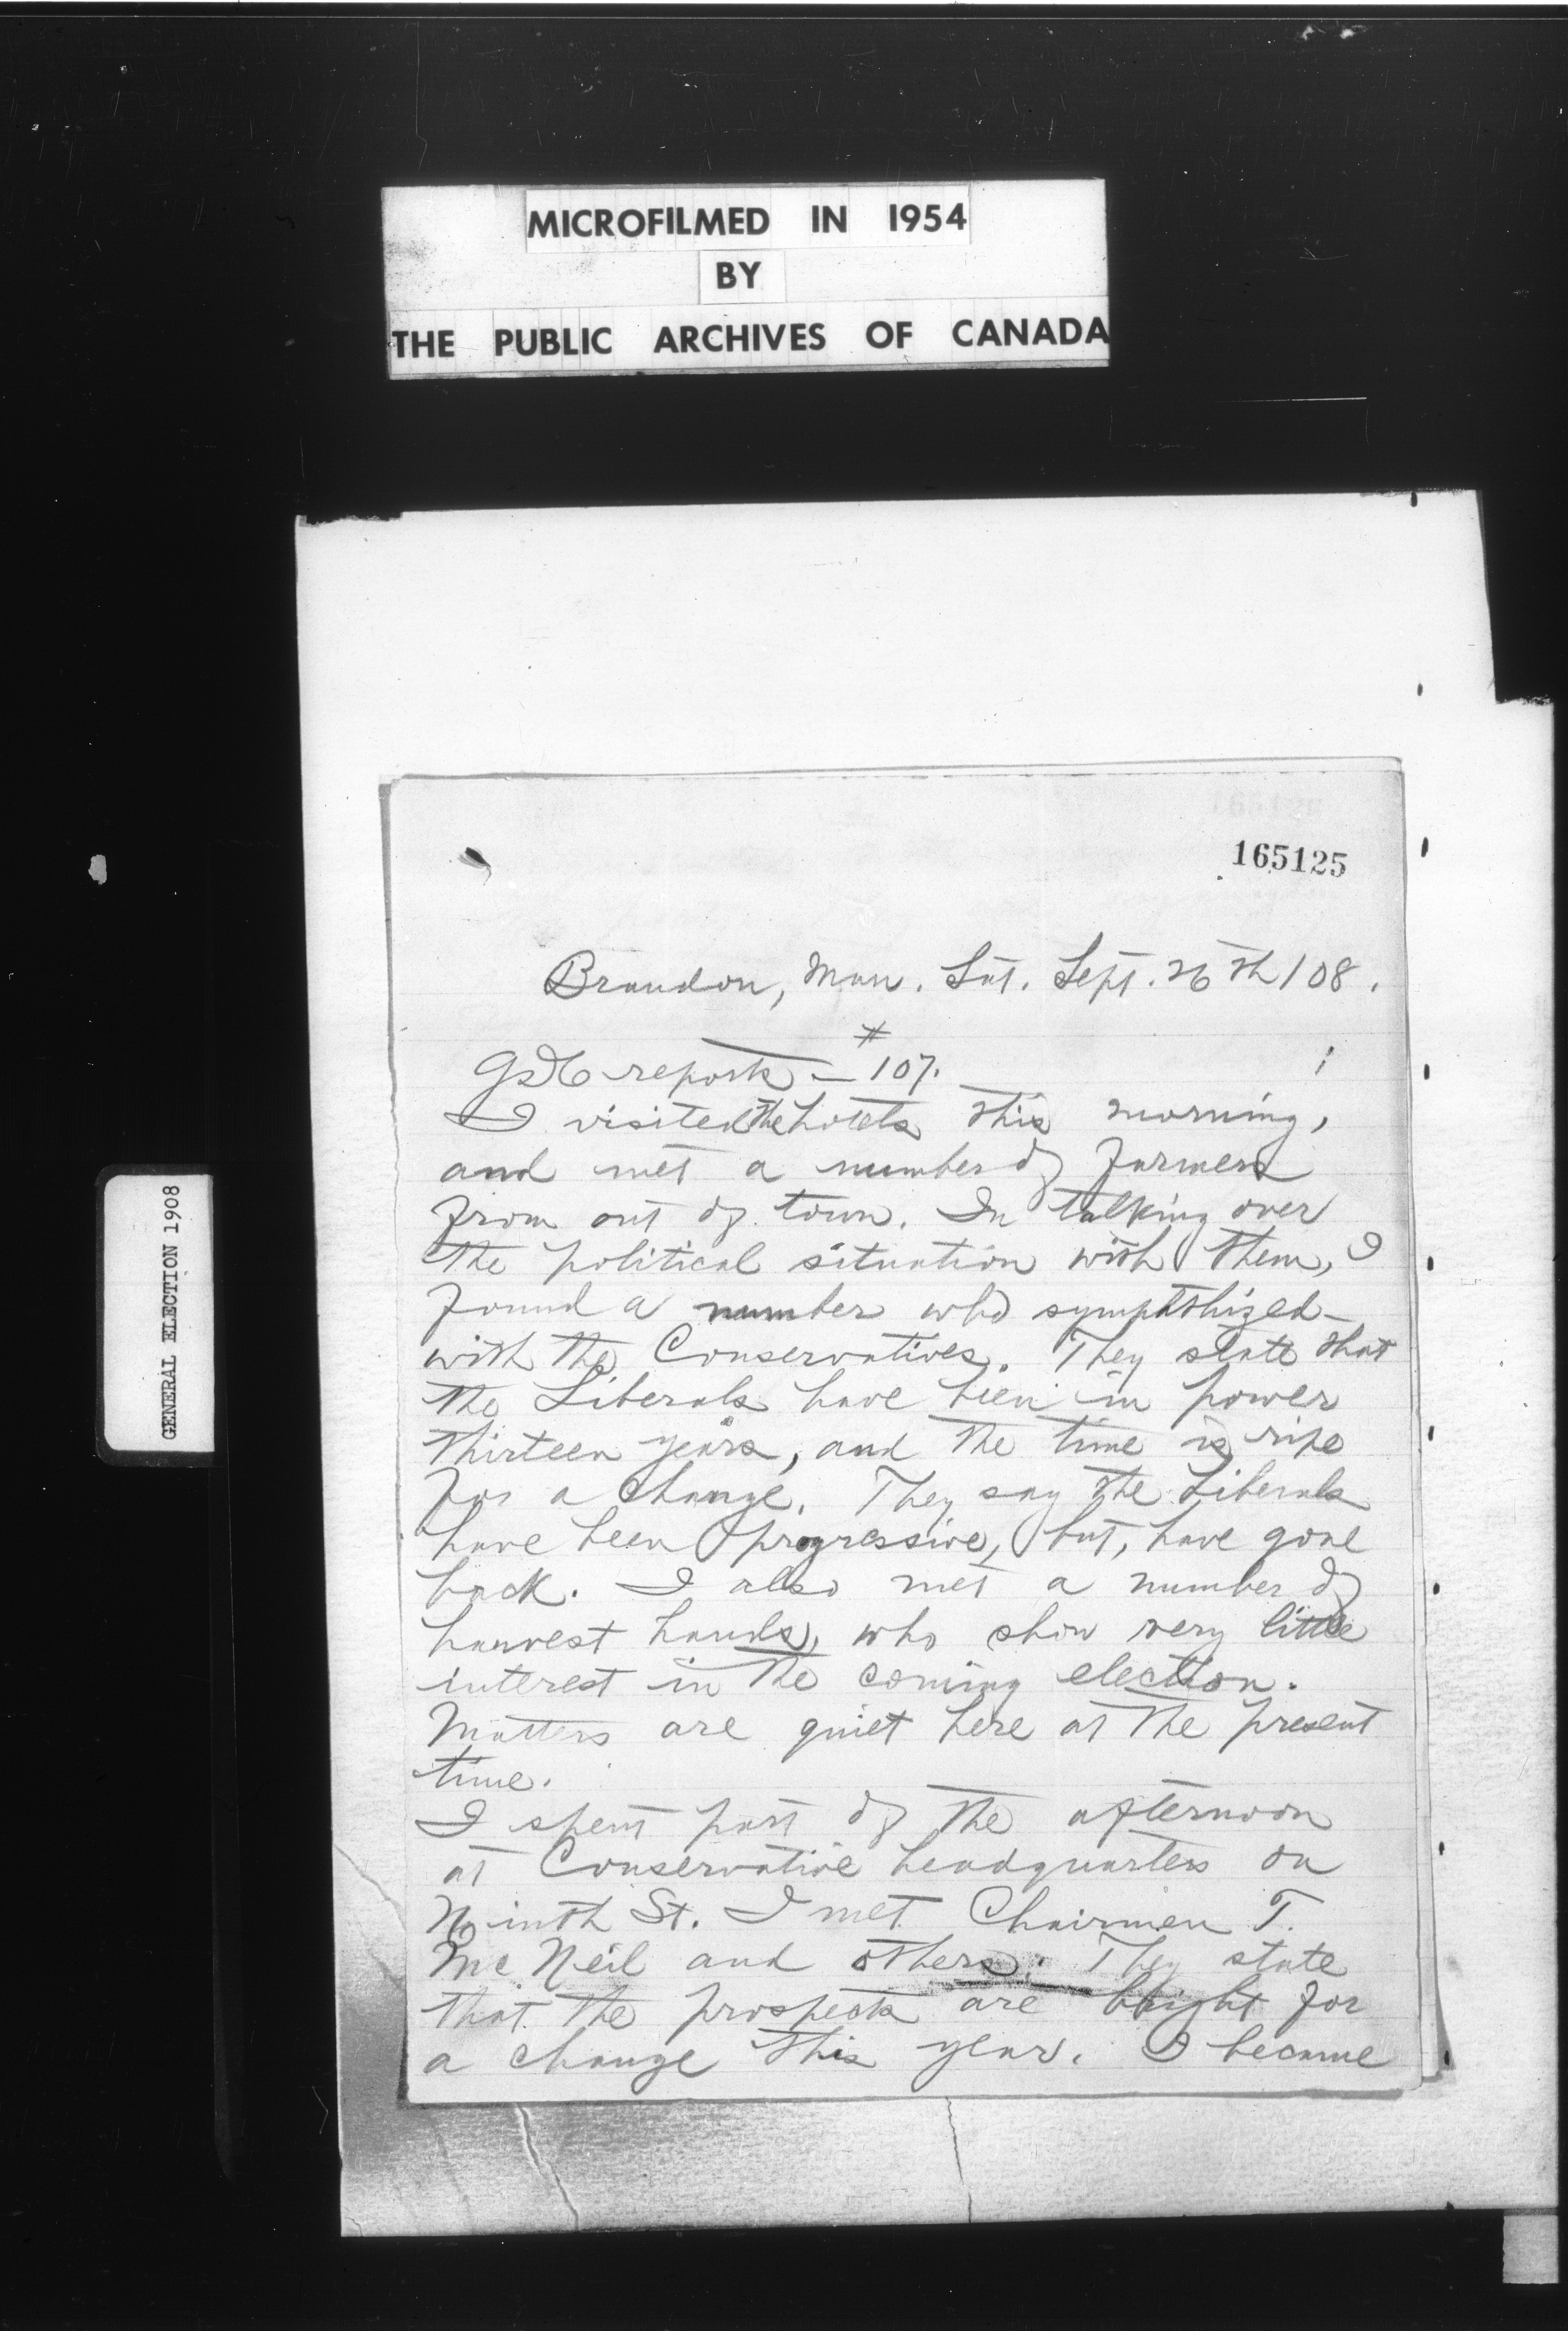 MICROFILMED IN 1954
BY
THE PUBLIC ARCHIVES OF CANADA
GENERAL ELECTION 1908
165125
Brandon, Man. Sat. Sept. 26th/08.
reports - #107.
I visited the hotels this morning,
and met a number of farmers
from out of town. In talking over
the political situation with them, I
found a number who sympathized
with the Conservatives. They state that
the Liberals have been in power
thirteen years, and the time is ripe
for a change. They say the Liberals
have been progressive, but, have gone
back. I also met a number of
harvest hands, who show very little
interest in the coming election.
Matters are quiet here at the present
time.
I spent part of the afternoon
at Conservative headquarters on
Ninth St. I met Chairman T.
Mc Neil and others. They state
that the prospects are bright for
a change this year. I became